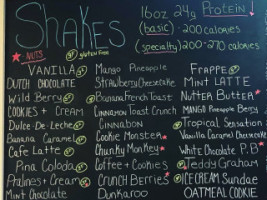 SHAKES
16oz 24g Protein!
(basic) - 200 calories
(specialty) 200-270 calories
★ = NUTS
GF gluten free
VANILLA GF
DUTCH CHOCOLATE
Wild Berry GF
COOKIES + CREAM
DULCE-DE-LECHE GF
BANANA CARAMEL GF
CAFE LATTE GF
PINA COLODA GF
PRALINES + CREAM GF
MINT CHOCOLATE
Mango Pineapple
STRAWBERRY CHEESECAKE
BANANA FRENCH TOAST
CINNAMON TOAST CRUNCH
CINNABON
COOKIE MONSTER
CHUNKY MONKEY
COFFEE + COOKIES
CRUNCH BERRIES
DUNKAROO
FRAPPE GF
MINT LATTE
NUTTER BUTTER
MANGO PINEAPPLE BERRY
TROPICAL SENSATION
VANILLA CARAMEL CHEESECAKE
WHITE CHOCOLATE P.B
TEDDY GRAHAM
ICE CREAM SUNDAE
OATMEAL COOKIE